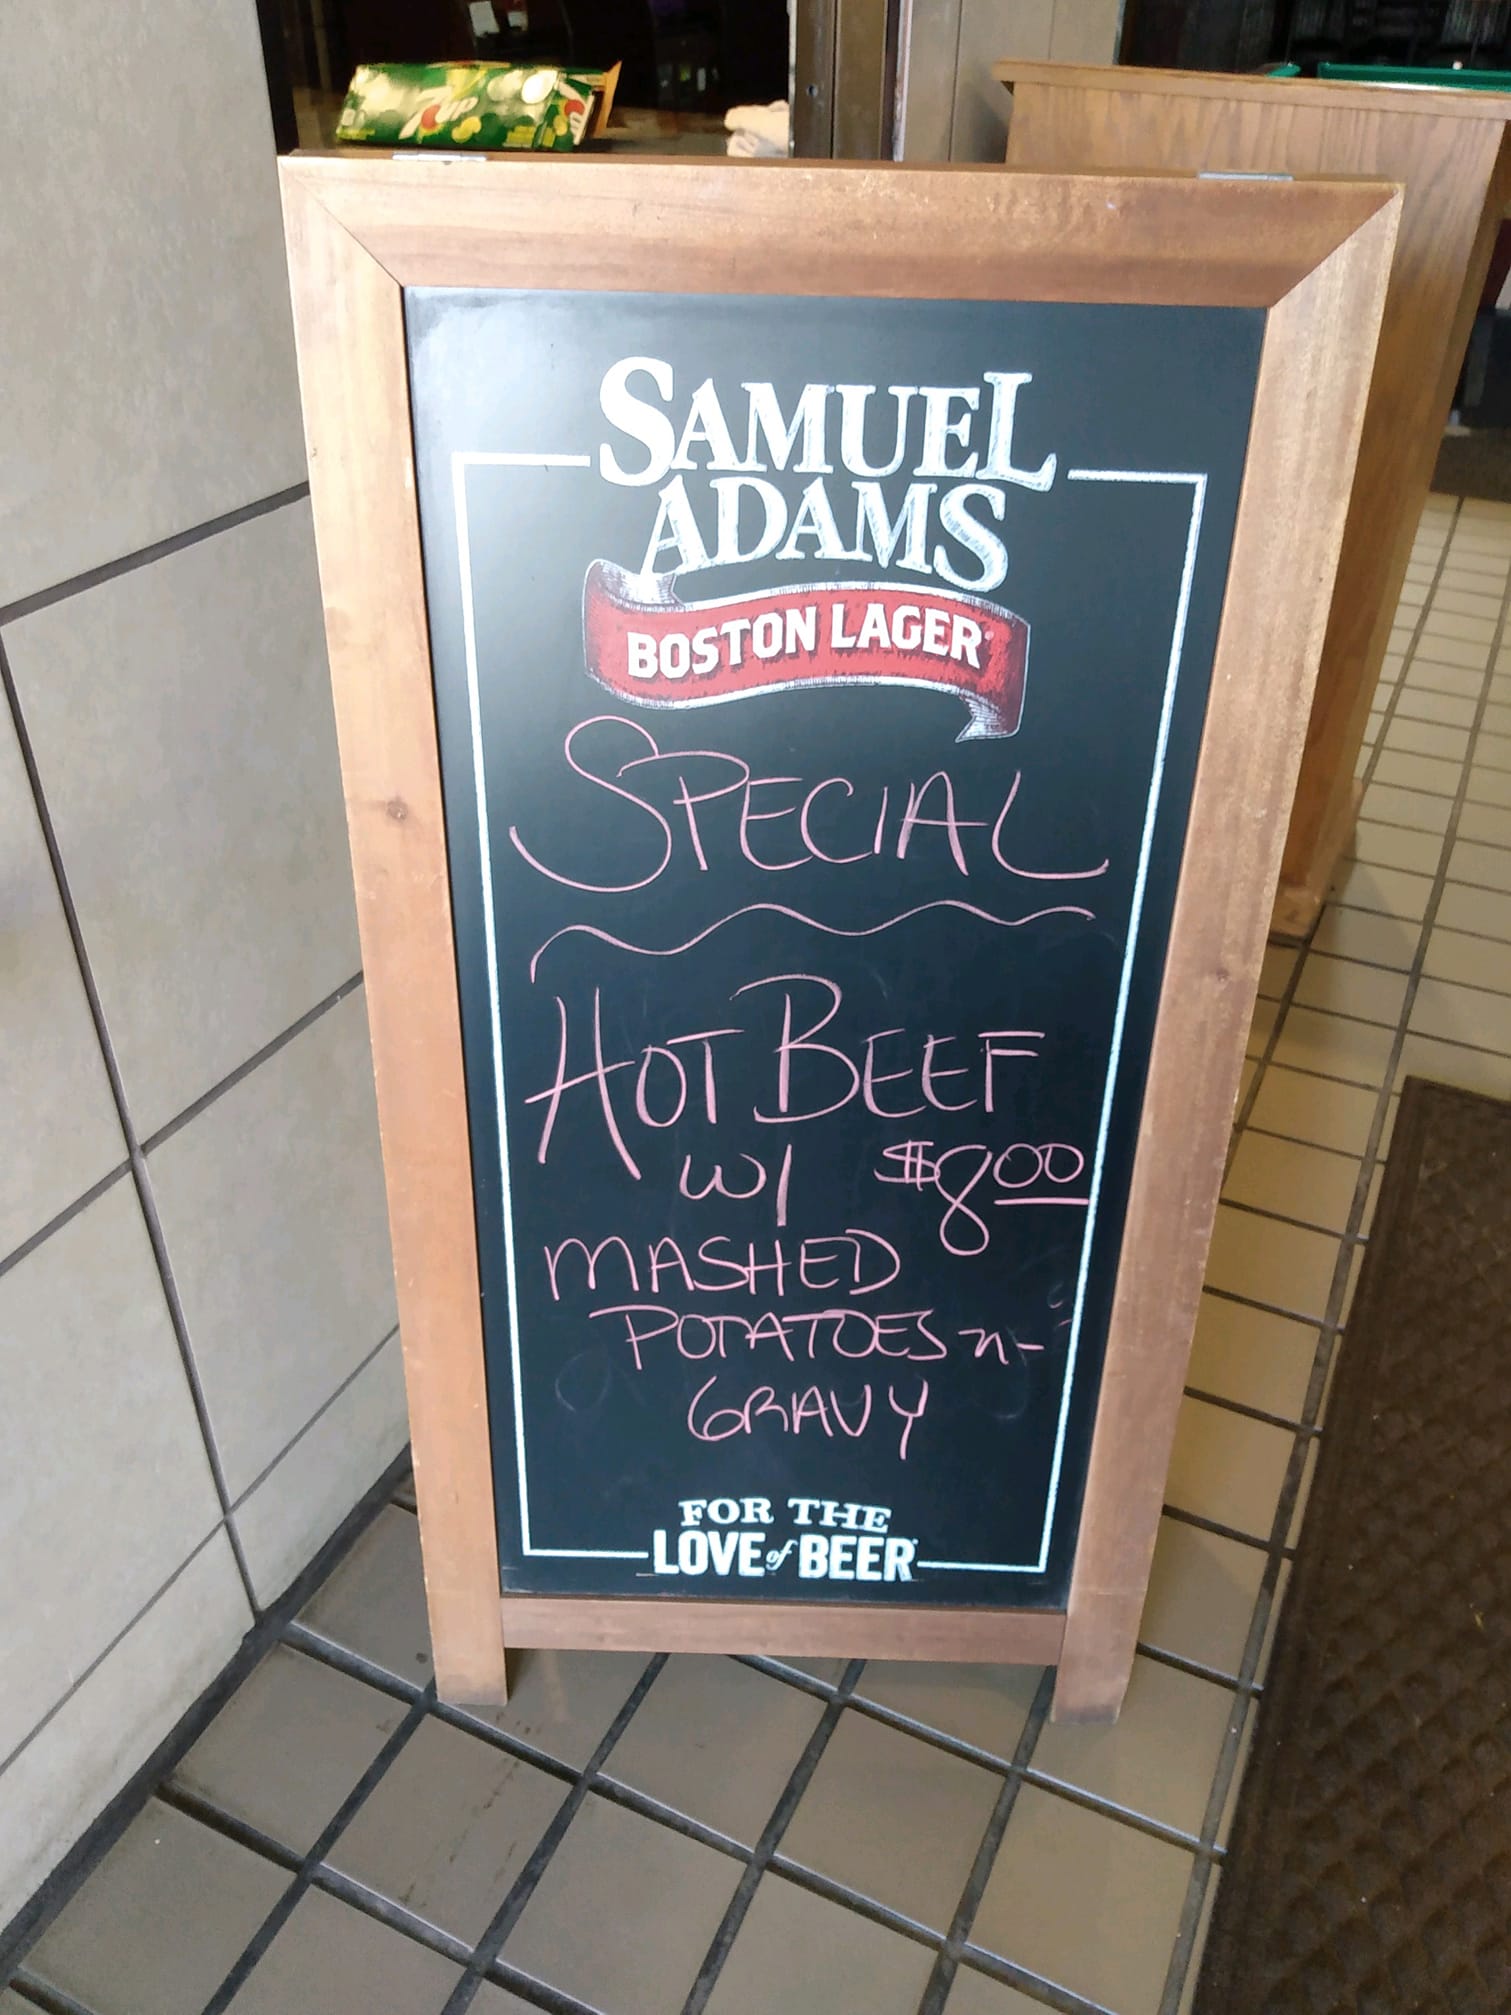 7up
SAMUEL
ADAMS
BOSTON LAGER
SPECIAL
HOT BEEF
W/ $8.00
MASHED
POTATOES -n-
GRAVY
FOR THE
LOVE of BEER